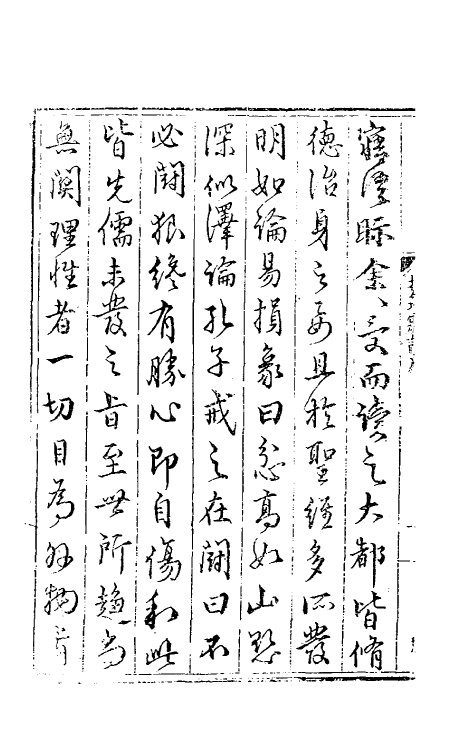 眎余〻受而讀之大都皆脩
德治身之要且於聖經多所發
明如論易損象曰忿高如山慾
深似澤論孔子戒之在鬪曰不
必鬪狠纔有勝心即自傷和此
皆先儒未發之旨至世所趨尚
無關理性者一切目為外物